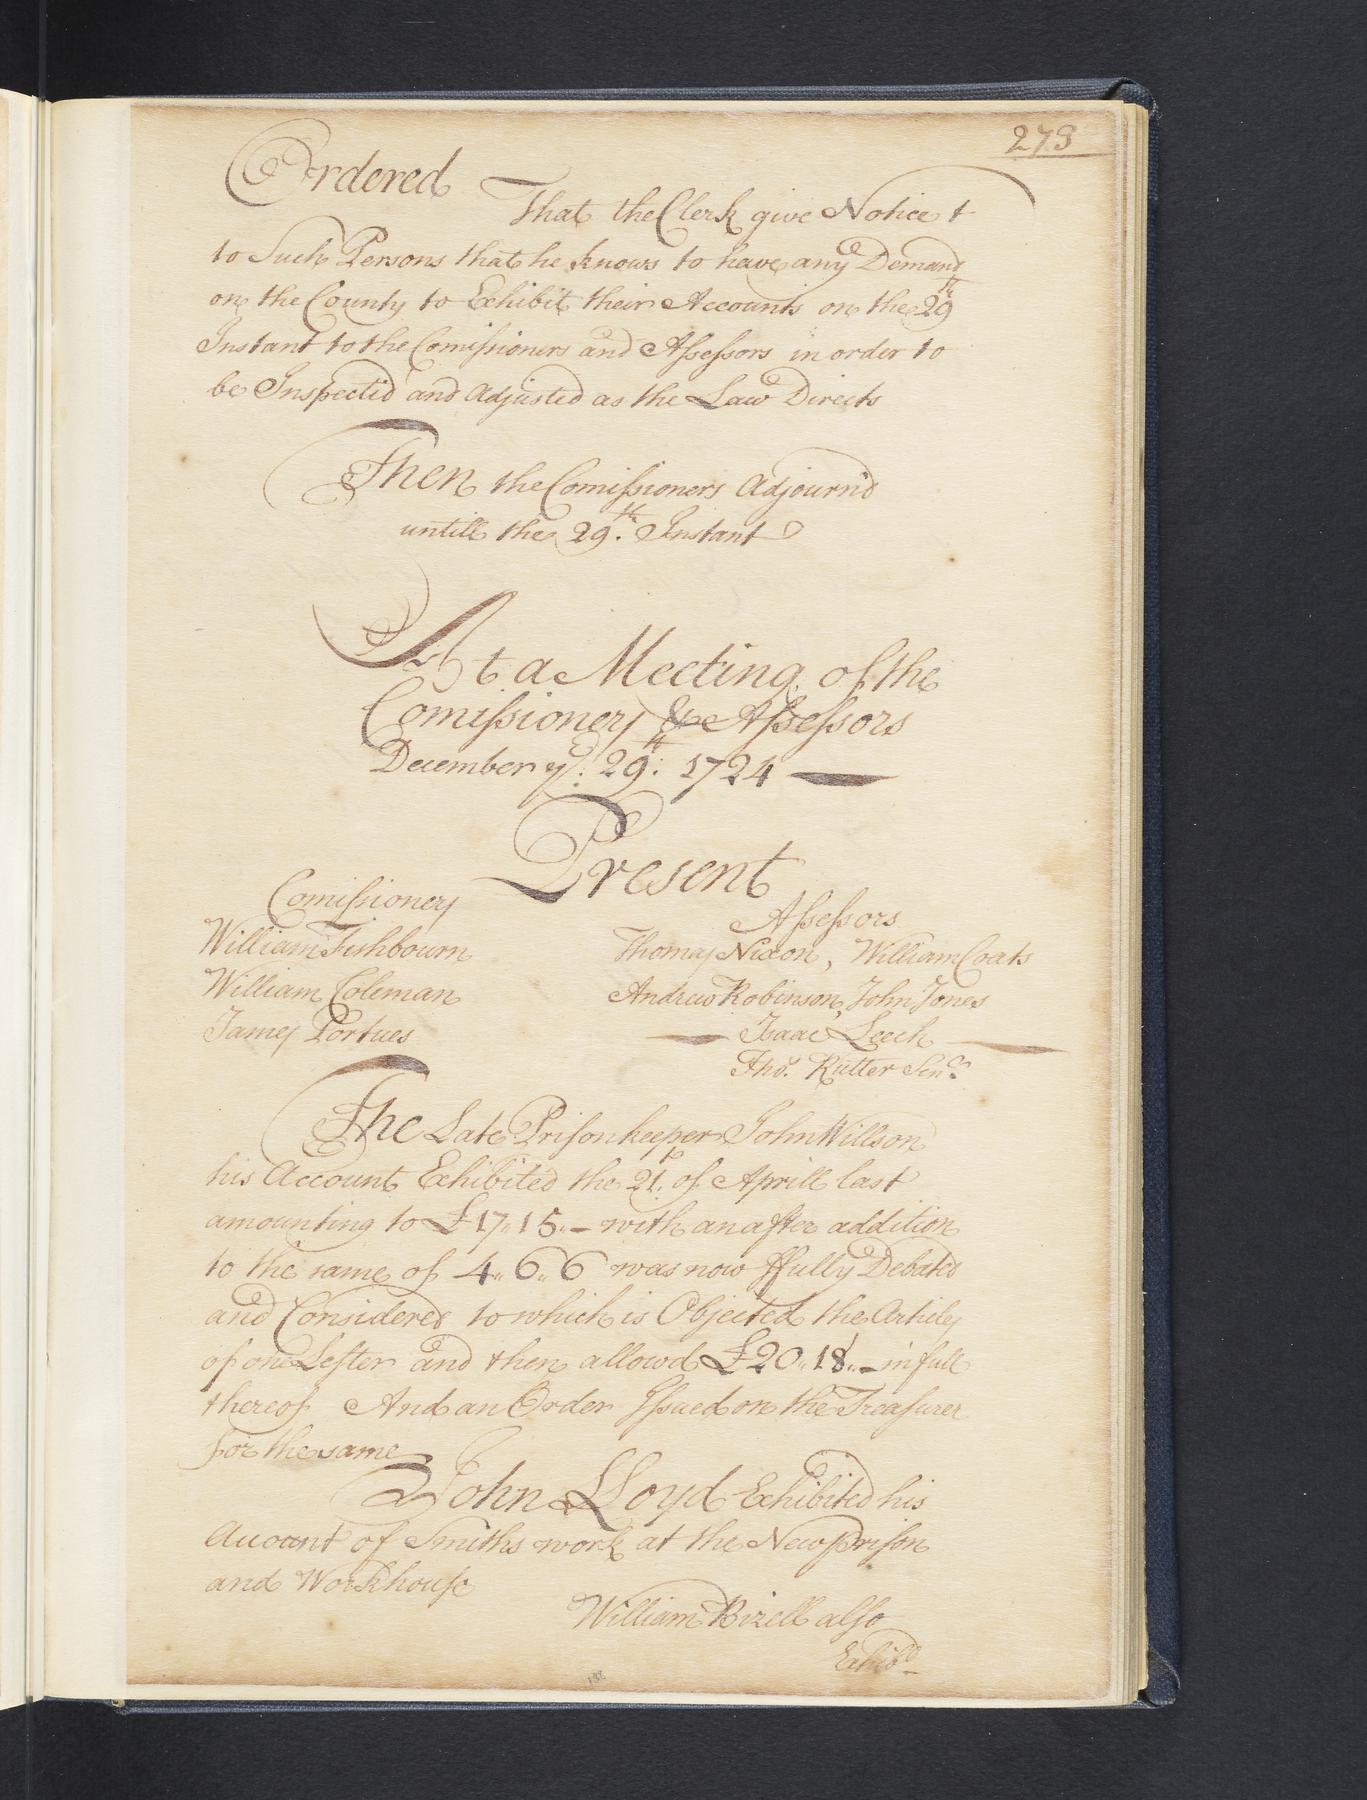 273
Ordered
That the Clerk give Notice t
to Such Persons that he knows to have any Demand
on the County to Exhibit their Accounts on the 29th
Instant to the Comissioners and Assessors in order to
be Inspected and Adjusted as the Law Directs
Then the Comissioners Adjourn'd
untill the 29th. Instant
At a Meeting of the
Comissioners & Assessors
December ye: 29th: 1724
Present
Comissioners
Assessors
William Fishbourn
Thomas Nixon, William Coats
William Coleman
Andrew Robinson, John Jones
James Portues
Isaac Leech
Tho. Rutter Senr.
The Late Prison keeper John Willson
his Account Exhibited the 21. of Aprill last
amounting to £17,,15,,- with an after addition
to the same of 4,,6,,6 was now ffully Debated
and Considered to which is Objected the Articles
of one Lester and then allowd £20,,18,,- in full
thereof And an Order Issued on the Treasurer
for the same
John Lloyd Exhibited his
Account of Smiths work at the New Prison
and Workhouse
William Bizell also
Exhibd